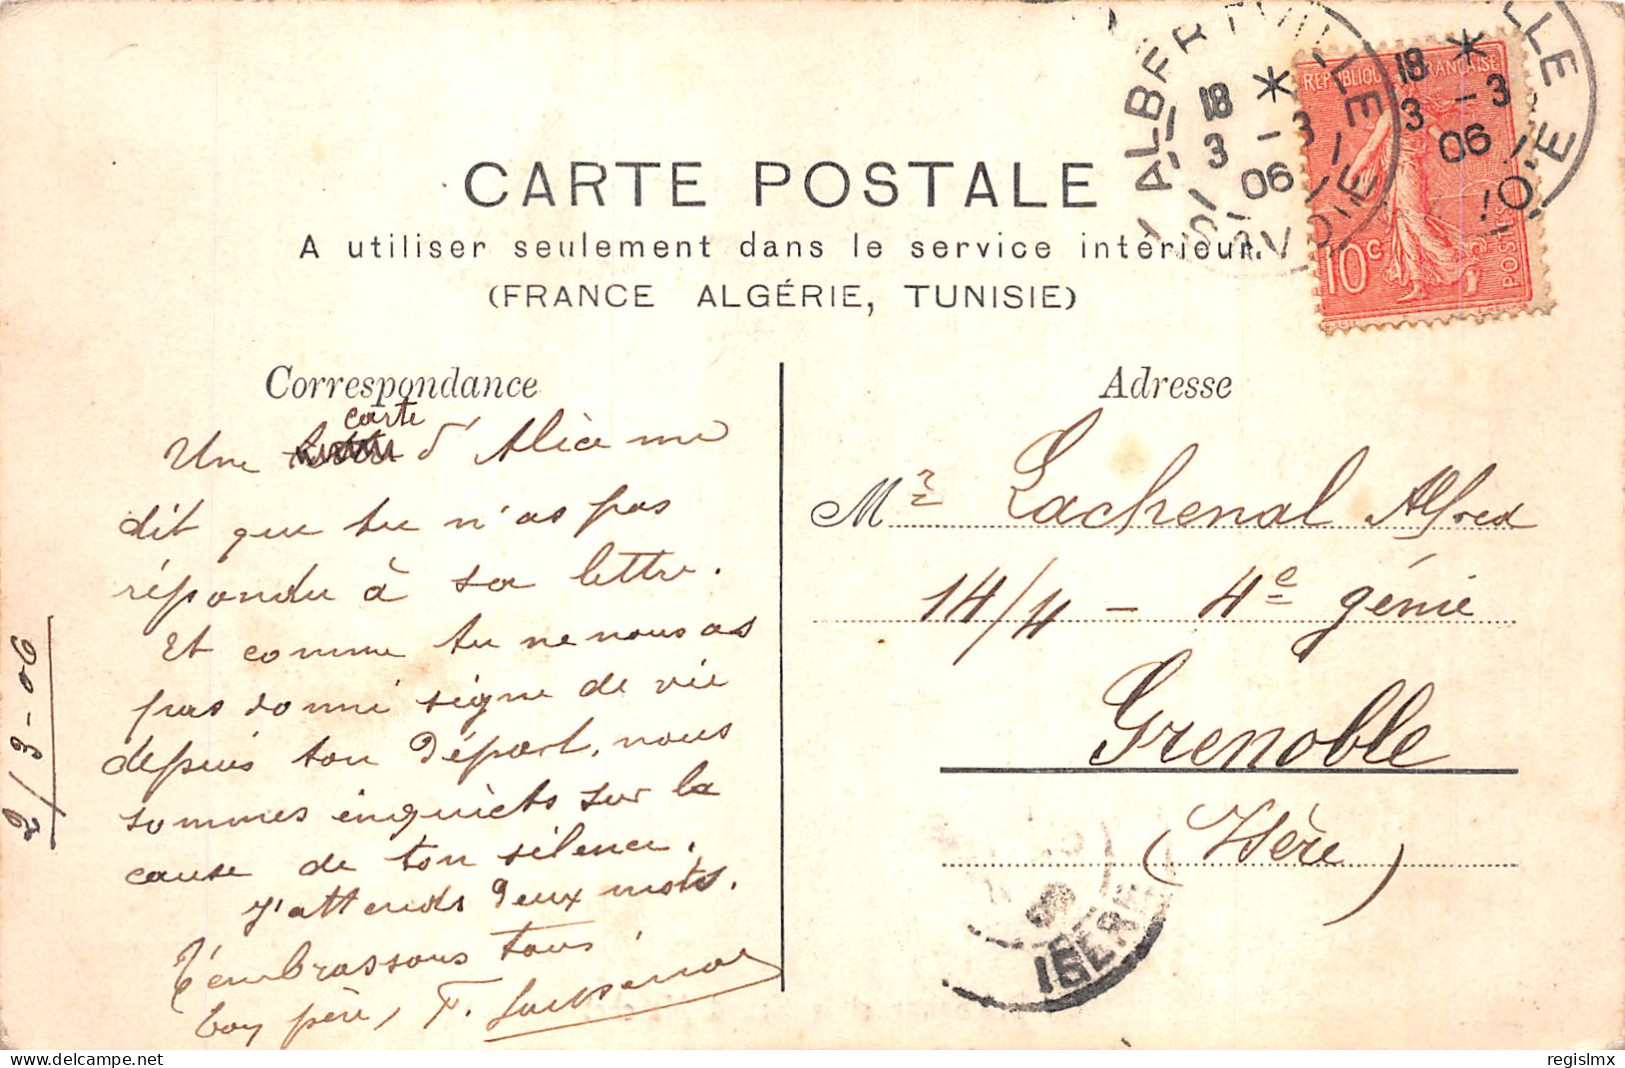 CARTE POSTALE
A utiliser seulement dans le service intérieur.
(FRANCE ALGÉRIE, TUNISIE)
ALBERTVILLE
18 *
3 - 3
06
SAVOIE
18 *
3 - 3
06
REPUBLIQUE FRANÇAISE
10c
POSTES
Correspondance
Une carte d'Alice me
dit que tu n'as pas
répondu à sa lettre.
Et comme tu ne nous as
pas donné signe de vie
depuis ton départ, nous
sommes inquiets sur la
cause de ton silence.
J'attends deux mots.
T'embrassons tous.
Ton père, F. Lachenal
2/3-06
Adresse
Mr Lachenal Alfred
14/4 - 4e génie
Grenoble
(Isère)
ISERE
regislmx